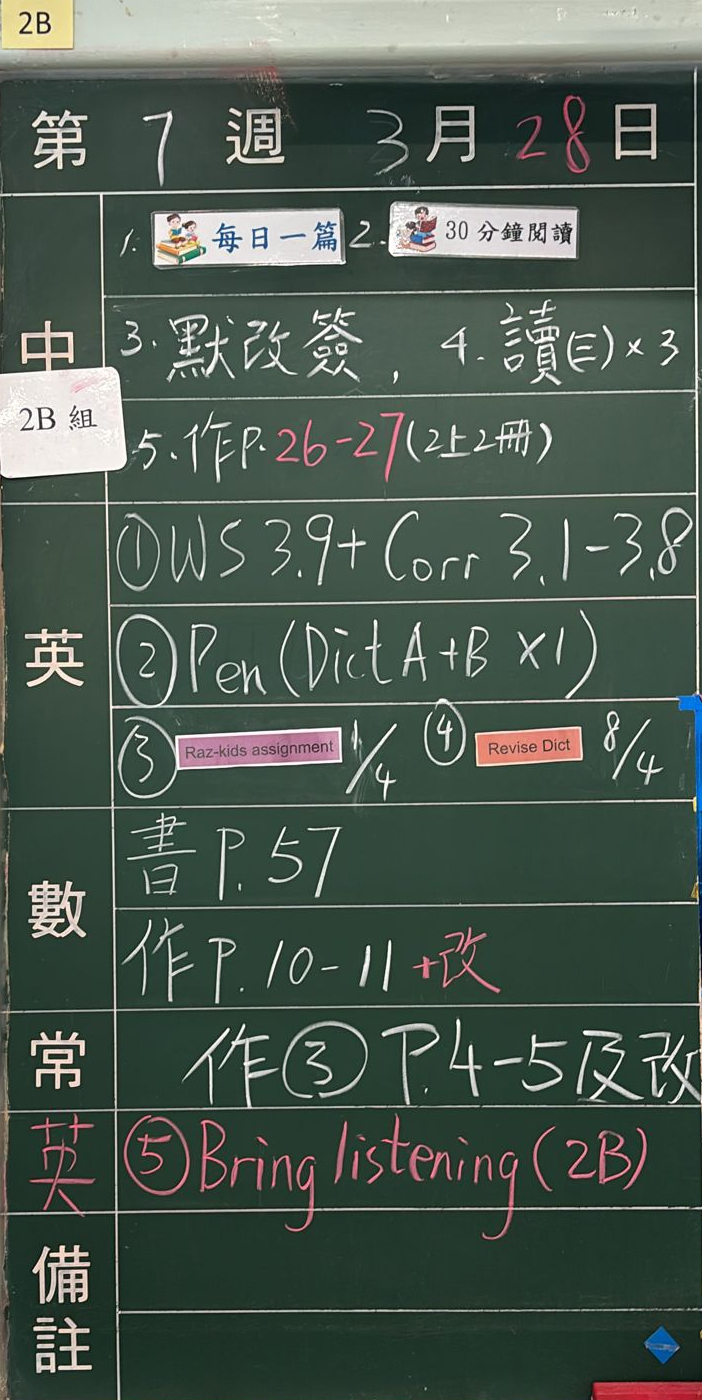 2B
第 7 週 3 月 28 日
1. 每日一篇 2. 30 分鐘閱讀
中
3. 默改簽, 4. 讀(三)×3
2B 組
5. 作P. 26-27(2上2冊)
英
①WS 3.9+ Corr 3.1-3.8
②Pen(Dict A+B ×1)
③ Raz-kids assignment 1/4 ④ Revise Dict 8/4
數
書 P. 57
作 P. 10-11 +改
常 作③ P.4-5及改
英 ⑤Bring listening(2B)
備註